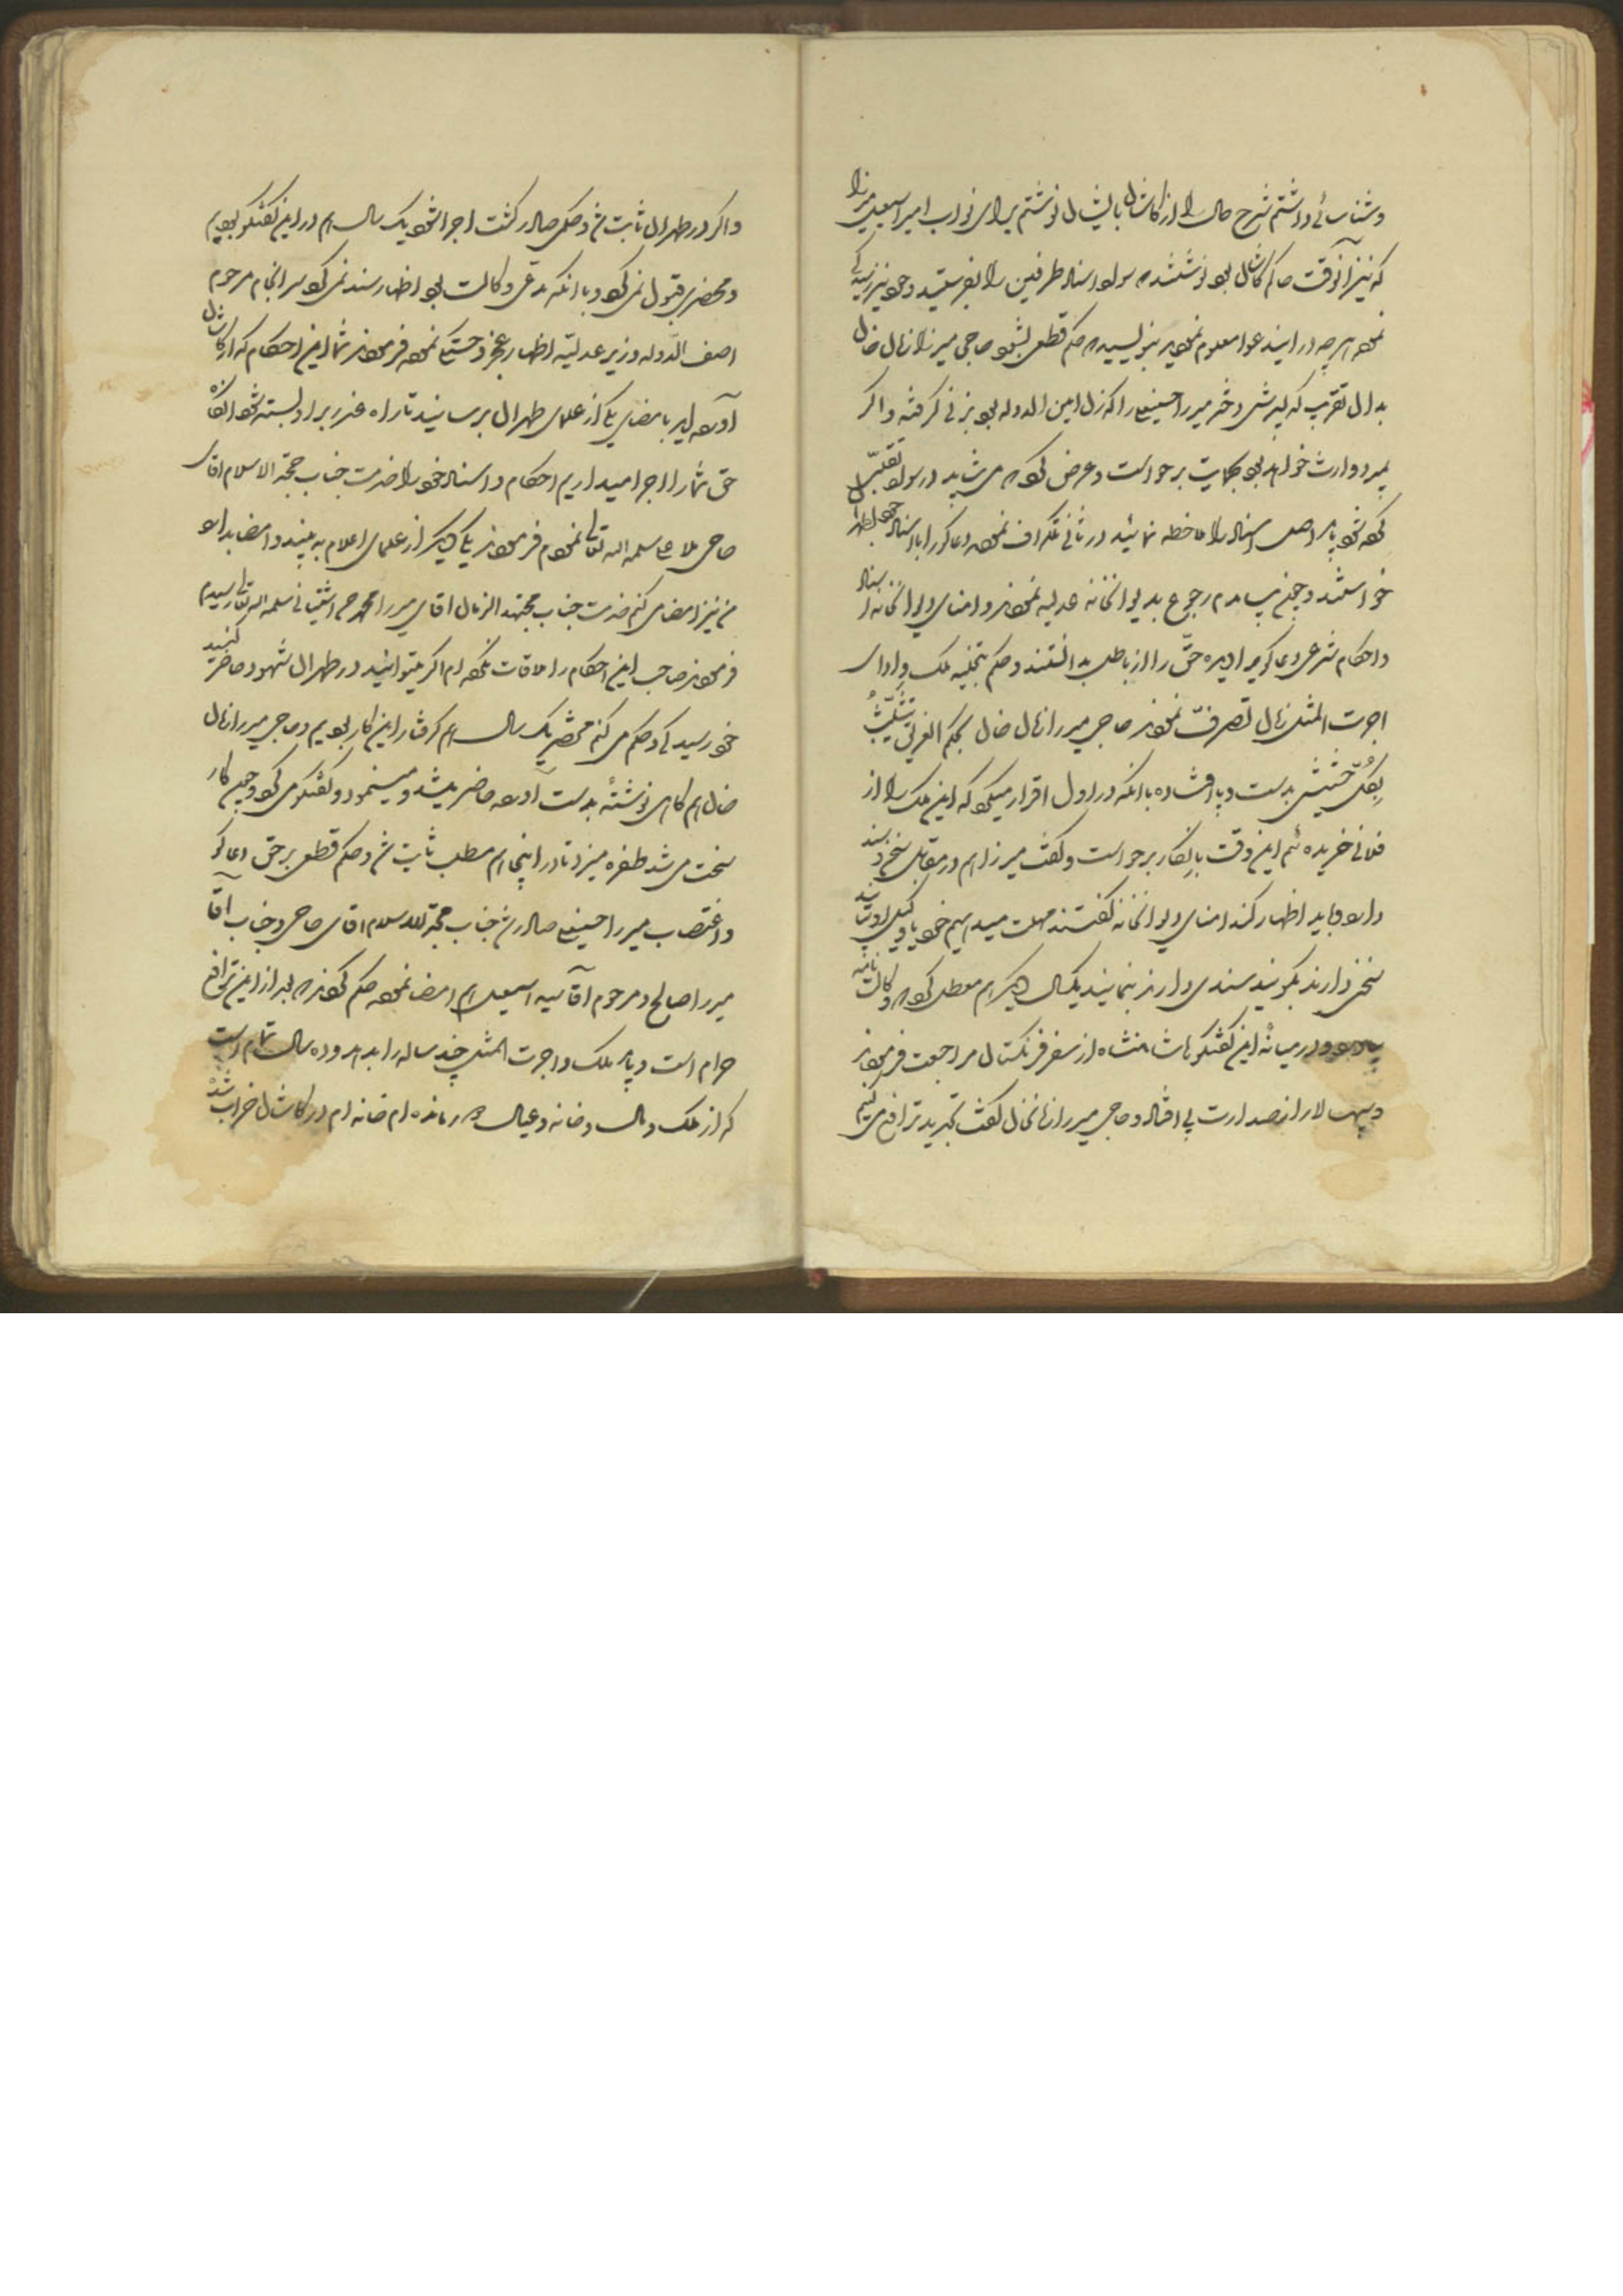 و شناسائی داشتم شرح حال را از کاشان بایشان نوشتم برای نواب امیر اسمعیل میرزا
که نیز آنوقت حاکم کاشان بود نوشتند سواد اسناد طرفین را بفرستید و خود نیز رسیدگی
نموده هرچه در این دعوا معلوم نمودید بنویسید که حکم قطعی بشود حاجی میرزا زمان خان
بدان تقرب که پسرش دختر میرزا حسینعلی را که زن امین الدوله بود بزنی گرفته و اگر
بمیرد وارث خواهد بود بحمایت برخواست و عرض کرد که می شاید در سواد تقلبی
کرده شود باید اصل اسناد را ملاحظه نمائید در ثانی تلگراف نموده دعاگو را با اسناد خود بطهران
خواستند و چون بیامدم رجوع بدیوانخانه عدلیه نمودند و امنای دیوانخانه از اسناد
و احکام شرعی دعاگو حق را از باطل بدانستند و حکم بتخلیه ملک و ادای
اجرت المثل زمان تصرف نمودند حاجی میرزا زمان خان بحکم الغریق یتشبث
بکل حشیش بدست و پا افتاده با آنکه در اول اقرار میکرد که این ملک را از
فلانی خریده ام این وقت بانکار برخواست و گفت میرزا هم در مقابل سخن و سند
دارد و باید اظهار کند امنای دیوانخانه گفتند مهلت میدهیم خود یا وکیل او بیایند
سخنی دارند بگویند سندی دارند بنمایند یکسال دیگر هم معطل کرد که وکالت نامه
بیاورد و در میانه این گفتگو ها شاهنشاه از سفر فرنگستان مراجعت فرمودند
و سپهسالار از صدارت بی افتاد و حاجی میرزا زمانخان گفت بگیرید ترافع می کنیم
و اگر در طهران ثابت شد و حکمی صادر گشت اجرا شود یک سال هم در این گفتگو بودیم
و محضری قبول نمی کرد و با آنکه مدعی وکالت بود اظهار سند نمی کرد سرانجام مرحوم
اصف الدوله وزیر عدلیه اظهار عجز و خستگی نموده فرمودند شما این احکام که از کاشان
آورده اید بامضای یکی از علمای طهران برسانید تا راه عذر بر او بسته شود آنگاه
حق شما را اجرا میداریم احکام و اسناد خود را خدمت جناب حجة الاسلام اقای
حاجی ملا علی سلمه الله تعالی نمودم فرمودند یکی دیگر از علمای اعلام به بیند و امضا بدارد
من نیز امضا می کنم خدمت جناب مجتهد الزمان اقای میرزا محمد حسن اشتیانی سلمه الله تعالی رسیدم
فرمودند صاحب این احکام را ملاقات نکرده ام اگر میتوانید در طهران شهود حاضر کنید
خود رسیدگی و حکم می کنم یک سال هم گرفتار این کار بودیم و حاجی میرزا زمان
خان هم گاهی نوشته بدست آورده حاضر میشد و مینمود و گفتگو می کرد و چون کار
سخت می شد طفره میزد تا در اینجا هم مطلب ثابت شد و حکم قطعی بر حق دعاگو
و اغتصاب میرزا حسینعلی صادر شد جناب حجة الاسلام اقای حاجی و جناب آقا
میرزا صالح و مرحوم آقا سید اسمعیل هم امضا نموده حکم کردند که بعد از این ترافع
حرام است و باید ملک و اجرت المثل چند ساله را بدهد و ده سال تمام است
که از ملک و مال و خانه و عیال در مانده ام خانه ام در کاشان خراب شده